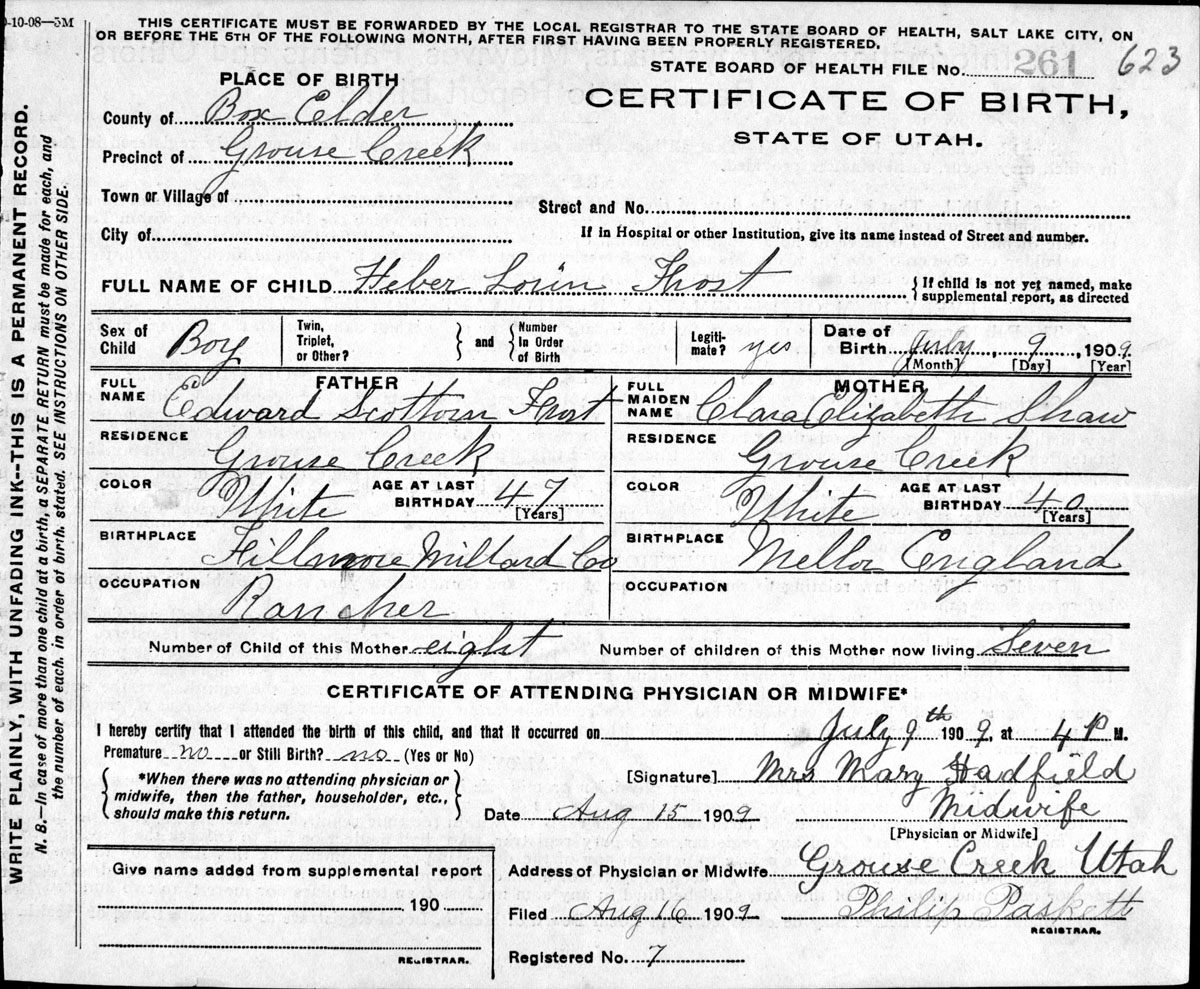 0-10-08—5M
THIS CERTIFICATE MUST BE FORWARDED BY THE LOCAL REGISTRAR TO THE STATE BOARD OF HEALTH, SALT LAKE CITY, ON
OR BEFORE THE 5TH OF THE FOLLOWING MONTH, AFTER FIRST HAVING BEEN PROPERLY REGISTERED.
STATE BOARD OF HEALTH FILE No. 261 623
PLACE OF BIRTH
CERTIFICATE OF BIRTH,
STATE OF UTAH.
County of Box Elder
Precinct of Grouse Creek
Town or Village of
Street and No.
City of
If in Hospital or other Institution, give its name instead of Street and number.
FULL NAME OF CHILD Heber Lorin Frost
{If child is not yet named, make
supplemental report, as directed
Sex of Child Boy
Twin, Triplet, or Other?
} and { Number In Order of Birth
Legiti-mate? yes
Date of Birth July 9, 1909
[Month] [Day] [Year]
FATHER
FULL NAME Edward Scottorn Frost
RESIDENCE Grouse Creek
COLOR White AGE AT LAST BIRTHDAY 47 [Years]
BIRTHPLACE Fillmore Millard Co
OCCUPATION Rancher
MOTHER
FULL MAIDEN NAME Clara Elizabeth Shaw
RESIDENCE Grouse Creek
COLOR White AGE AT LAST BIRTHDAY 40 [Years]
BIRTHPLACE Mellor England
OCCUPATION
Number of Child of this Mother eight Number of children of this Mother now living Seven
CERTIFICATE OF ATTENDING PHYSICIAN OR MIDWIFE*
I hereby certify that I attended the birth of this child, and that it occurred on July 9th 1909, at 4 P M.
Premature no or Still Birth? no (Yes or No)
{ *When there was no attending physician or
midwife, then the father, householder, etc.,
should make this return. }
[Signature] Mrs Mary Hadfield
Date Aug 15 1909 Midwife
[Physician or Midwife]
Address of Physician or Midwife Grouse Creek Utah
Filed Aug 16 1909 Philip Paskett
REGISTRAR.
Registered No. 7
Give name added from supplemental report
190
REGISTRAR.
WRITE PLAINLY, WITH UNFADING INK--THIS IS A PERMANENT RECORD.
N. B.—In case of more than one child at a birth, a SEPARATE RETURN must be made for each, and
the number of each, in order of birth, stated. SEE INSTRUCTIONS ON OTHER SIDE.